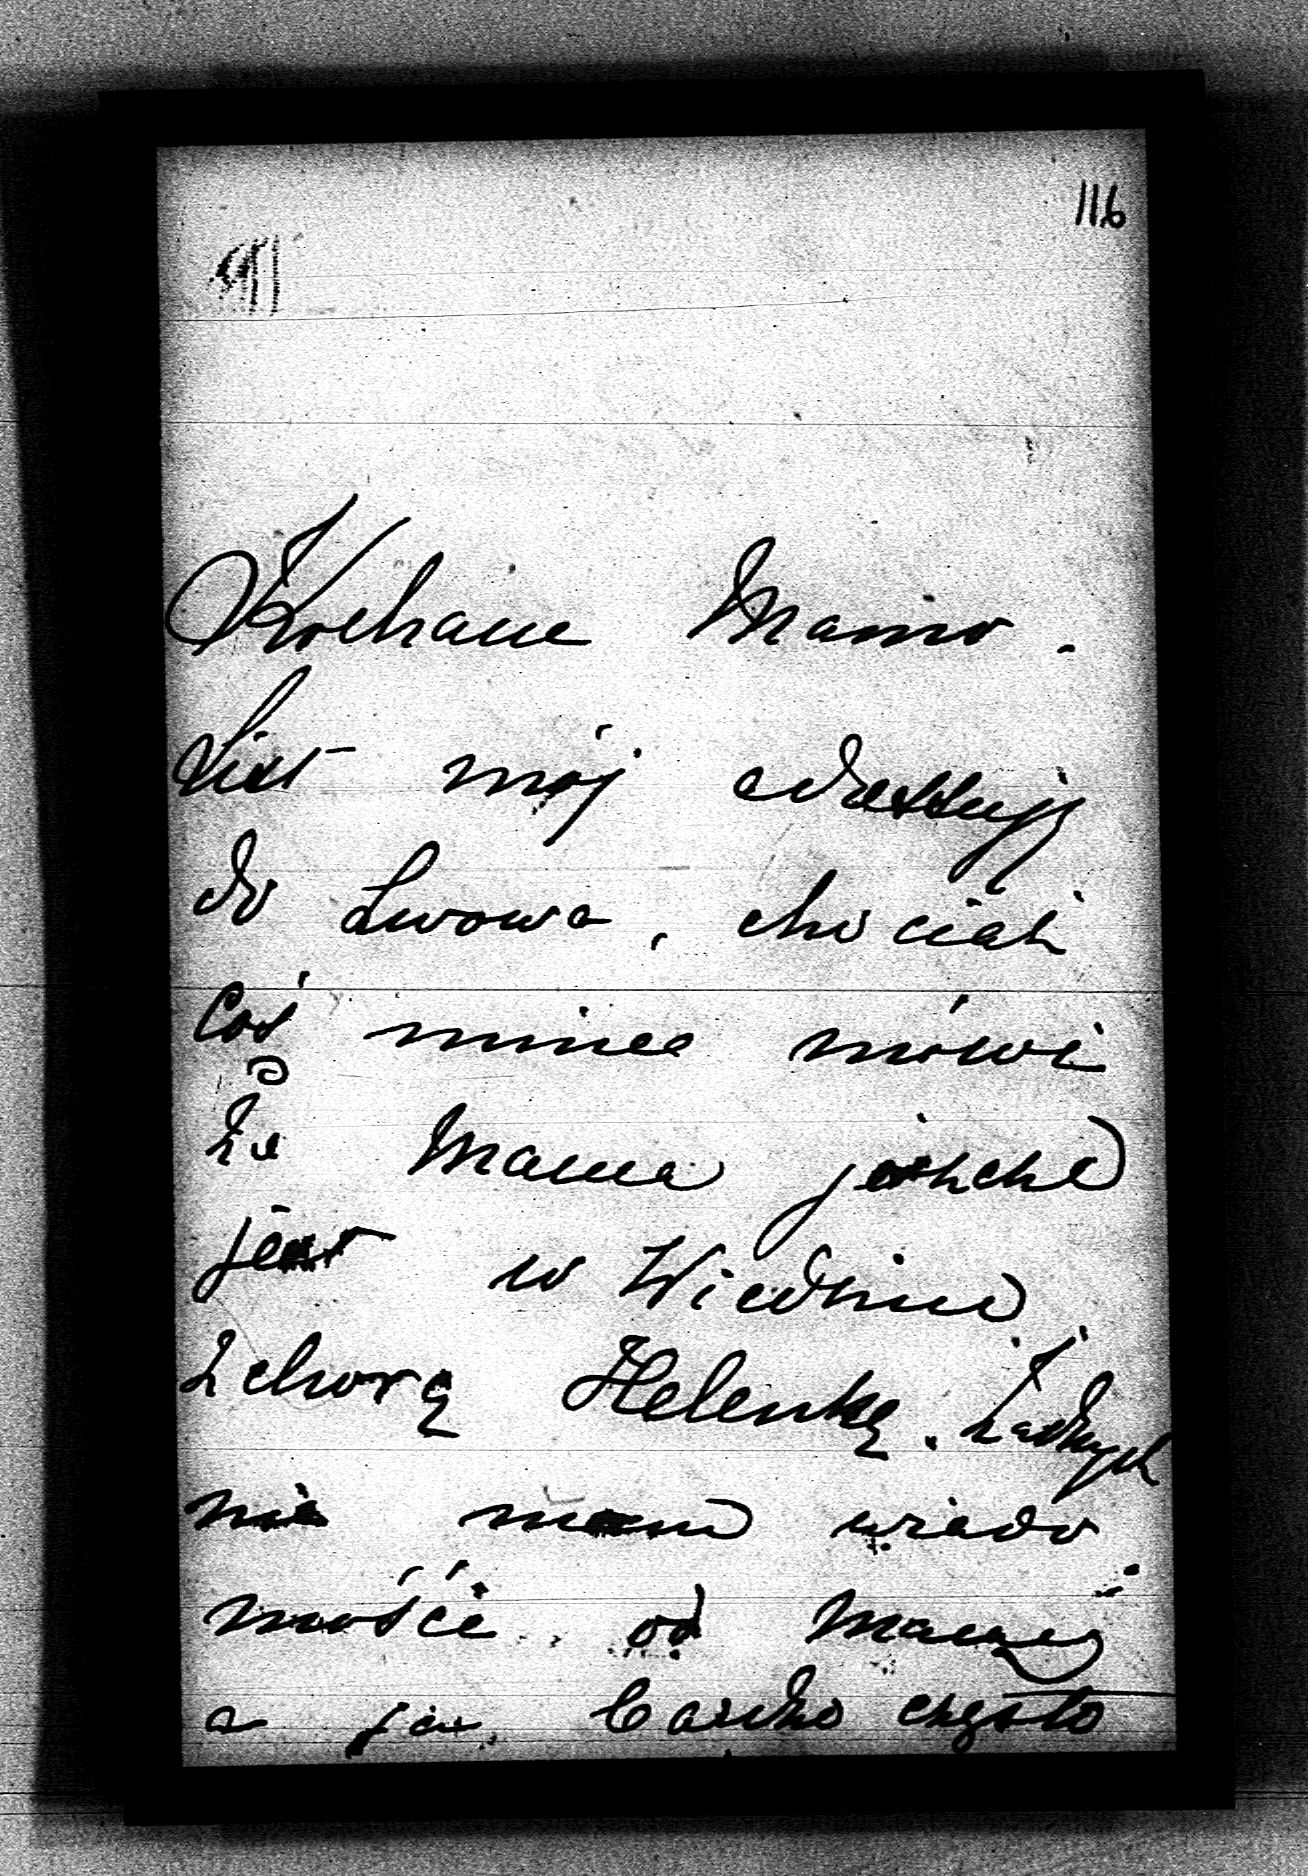 116
Kochana Mamo.
List mój adresuję
do Lwowa, chociaż
coś mnie mówi
że Mama jeszcze
jest w Wiedniu
z chorą Helenką. Żadnych
nie mam wiado
mości od Mamy
a ja bardzo często